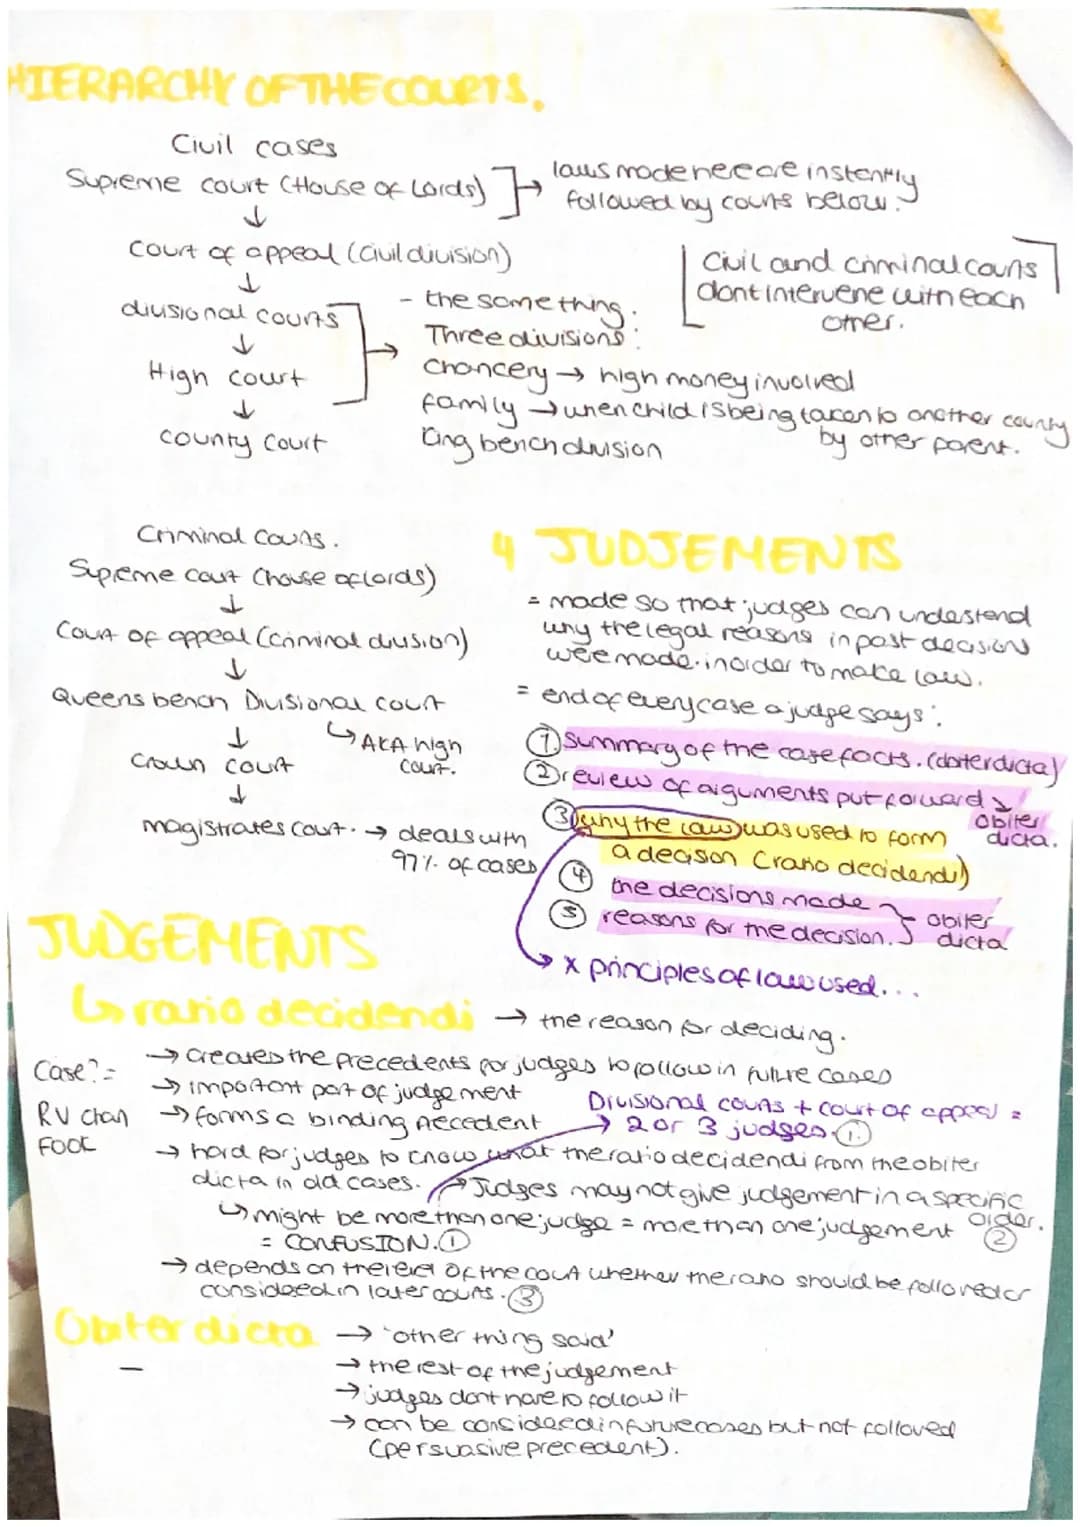 HIERARCHY OF THE COURTS.
Civil cases
Supreme court (House of Lords) → laws made here are instently
followed by courts below.
↓
Court of appeal (civil division)
Civil and criminal courts
dont intervene with each
other.
↓
divisional courts
↓
High court
↓
county court
- the same thing.
Three divisions:
Chancery → high money involved
family → when child is being taken to another county
by other parent.
King bench division
Criminal Courts.
Supreme court (house of lords)
↓
Court of appeal (Criminal division)
↓
Queens bench Divisional court
↳ AKA high
court.
↓
Crown court
↓
magistrates court. → deals with
97% of cases
4 JUDJEMENTS
= made so that judges can understand
why the legal reasons in past decisions
were made. in order to make law.
= end of every case a judge says:
① summary of the case facts. (obiter dicta)
② review of arguments put forward ↘
obiter
dicta.
③ why the law was used to form
a decision (ratio decidendi)
④ the decisions made
⑤ reasons for the decision.
obiter
dicta
→ x principles of law used...
JUDGEMENTS
↳ ratio decidendi → the reason for deciding.
→ creates the precedents for judges to follow in future cases
Case? =
RV Chan
FOOK
→ important part of judgement
→ forms a binding precedent
Divisional courts + court of appeal =
→ 2 or 3 judges. ①
→ hard for judges to know what the ratio decidendi from the obiter
dicta in old cases. → Judges may not give judgement in a specific
order. ②
↳ might be more then one judge = more than one judgement
= CONFUSION. ①
→ depends on the level of the court whether the ratio should be followed or
considered in later courts. ③
Obiter dicta → 'other thing said'
–
→ the rest of the judgement
→ judges dont have to follow it
→ can be considered in future cases but not followed
(persuasive precedent).